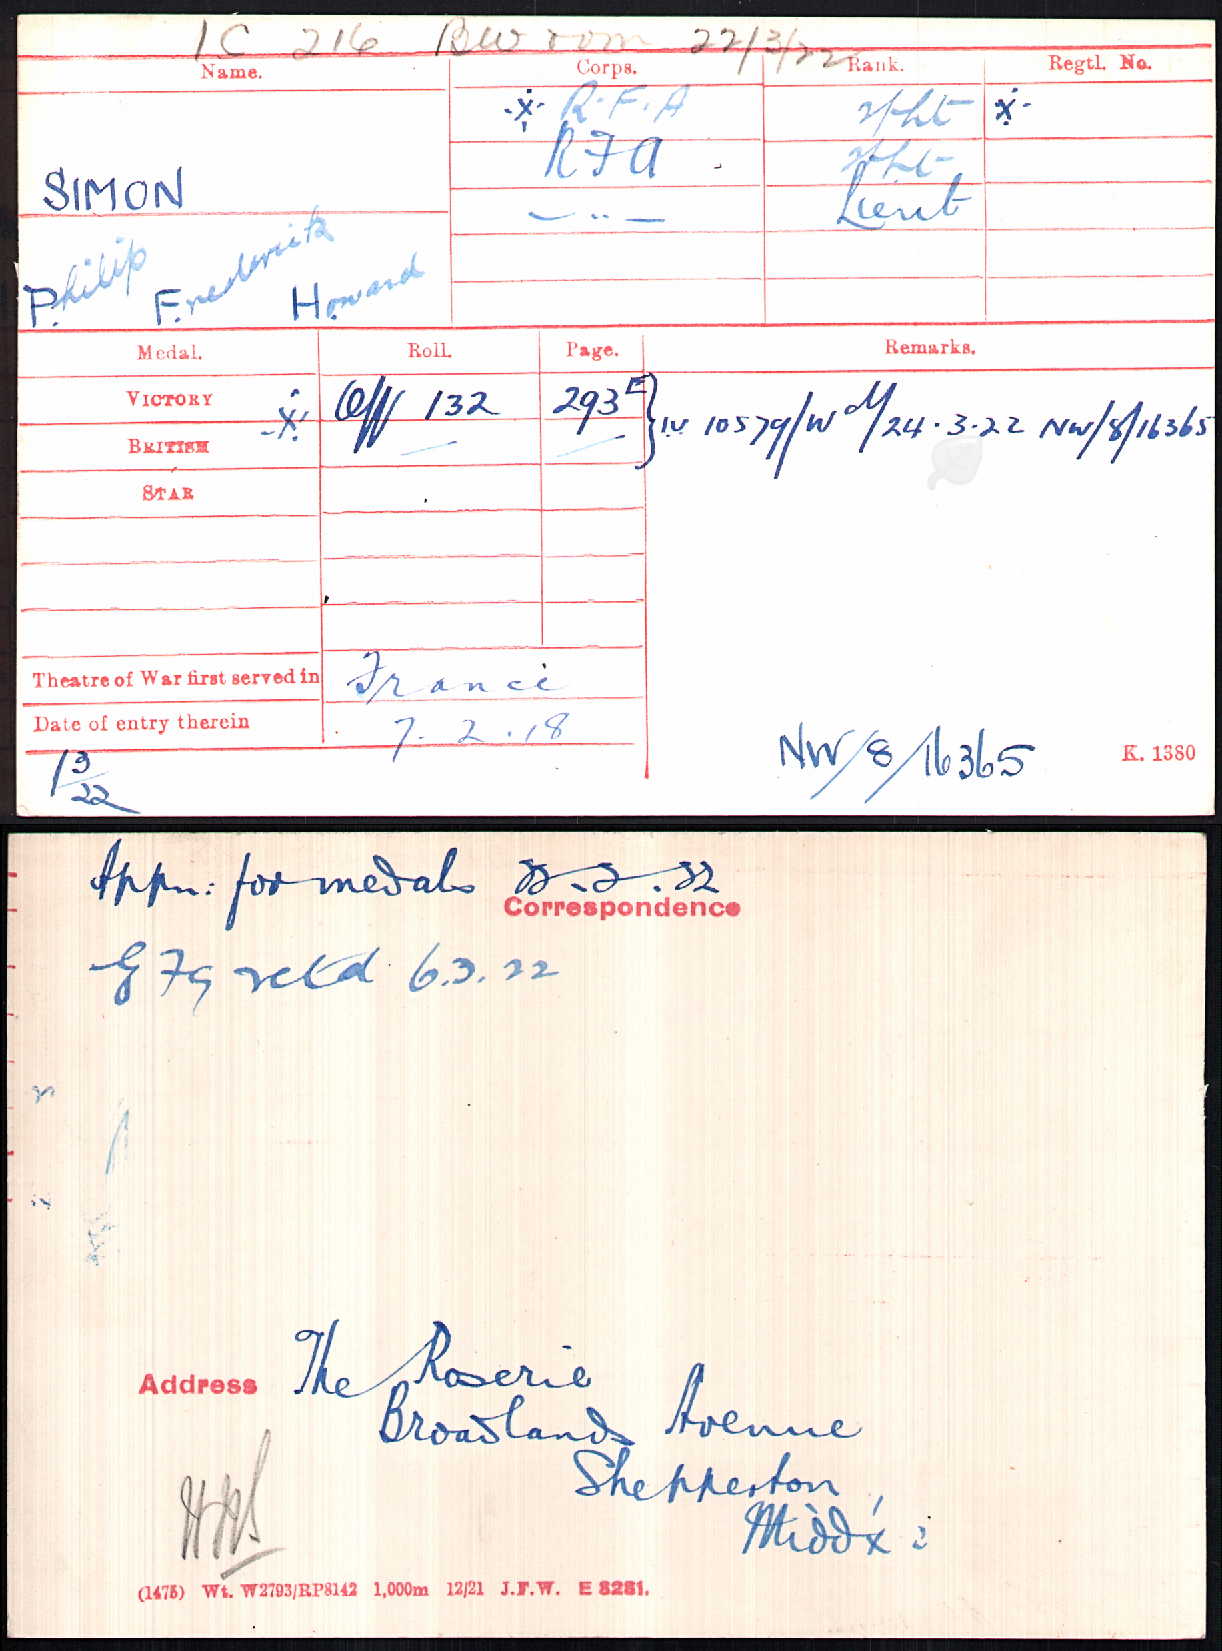 IC 216 BW room 22/3/22
Name. Corps. Rank. Regtl. No.
R.F.A 2/Lt
RFA 2/Lt
SIMON
— „ — Lieut
Philip Frederick Howard
Medal. Roll. Page. Remarks.
VICTORY Off 132 293 E IV 10579/W of/24.3.22 NW/8/16365
BRITISH
STAR
Theatre of War first served in France
Date of entry therein 7.2.18
NW/8/16365 K. 1380
13/22
Appn: for medals
Correspondence
retd 6.3.22
Address The Roserie
Broadlands Avenue
Shepperton,
Middx:
(1475) Wt. W2793/RP8142 1,000m 12/21 J.F.W. E 8281.